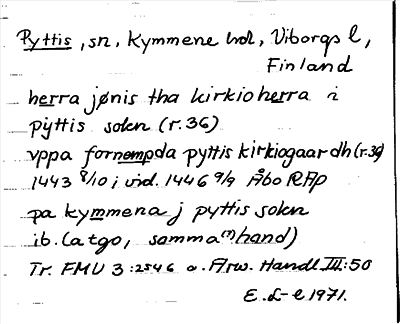 Pyttis, sn, Kymmene hd, Viborgs l,
Finland
herra jønis tha kirkioherra i
pyttis soken (r.36)
vppa fornempda pyttis kirkiogaardh (r.39)
1443 8/10 i vid. 1446 9/9 Åbo RAp
pa kymmena j pyttis soken
ib. (atgo, samma(?) hand)
Tr. FMU 3:2546 o. Arw. Handl. III:50
E. L-e 1971.